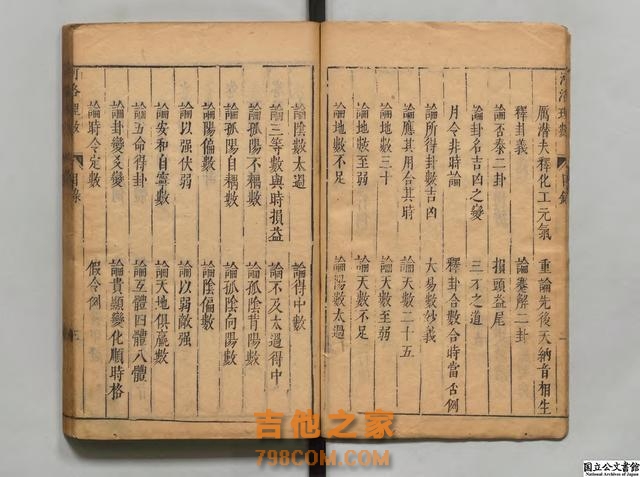 厲潜夫釋化工元氣 重論先後天納音相生
釋卦義 論蹇解二卦
論否泰二卦 損頭益尾
論卦名吉凶之變 三才之道
月令非時論 釋卦合數合時當否例
論所得卦數吉凶 大易數妙義
論應其用合其時 論天數二十五
論地數三十 論天數至弱
論地數至弱 論天數不足
論地數不足 論陽數太過
論陰數太過 論得中數
論三等數與時損益 論不及太過得中
論孤陽不耦數 論孤陰背陽數
論孤陽自耦數 論孤陰向陽數
論陽偏數 論陰偏數
論以强伏弱 論以弱敵强
論安和自寧數 論天地俱贏數
論五命得卦 論互體四體八體
論卦變爻變 論貴顯變化順時格
論時令定數 假令例
河洛理數
目錄
吉他之家
798COM.COM
国立公文書館
National Archives of Japan